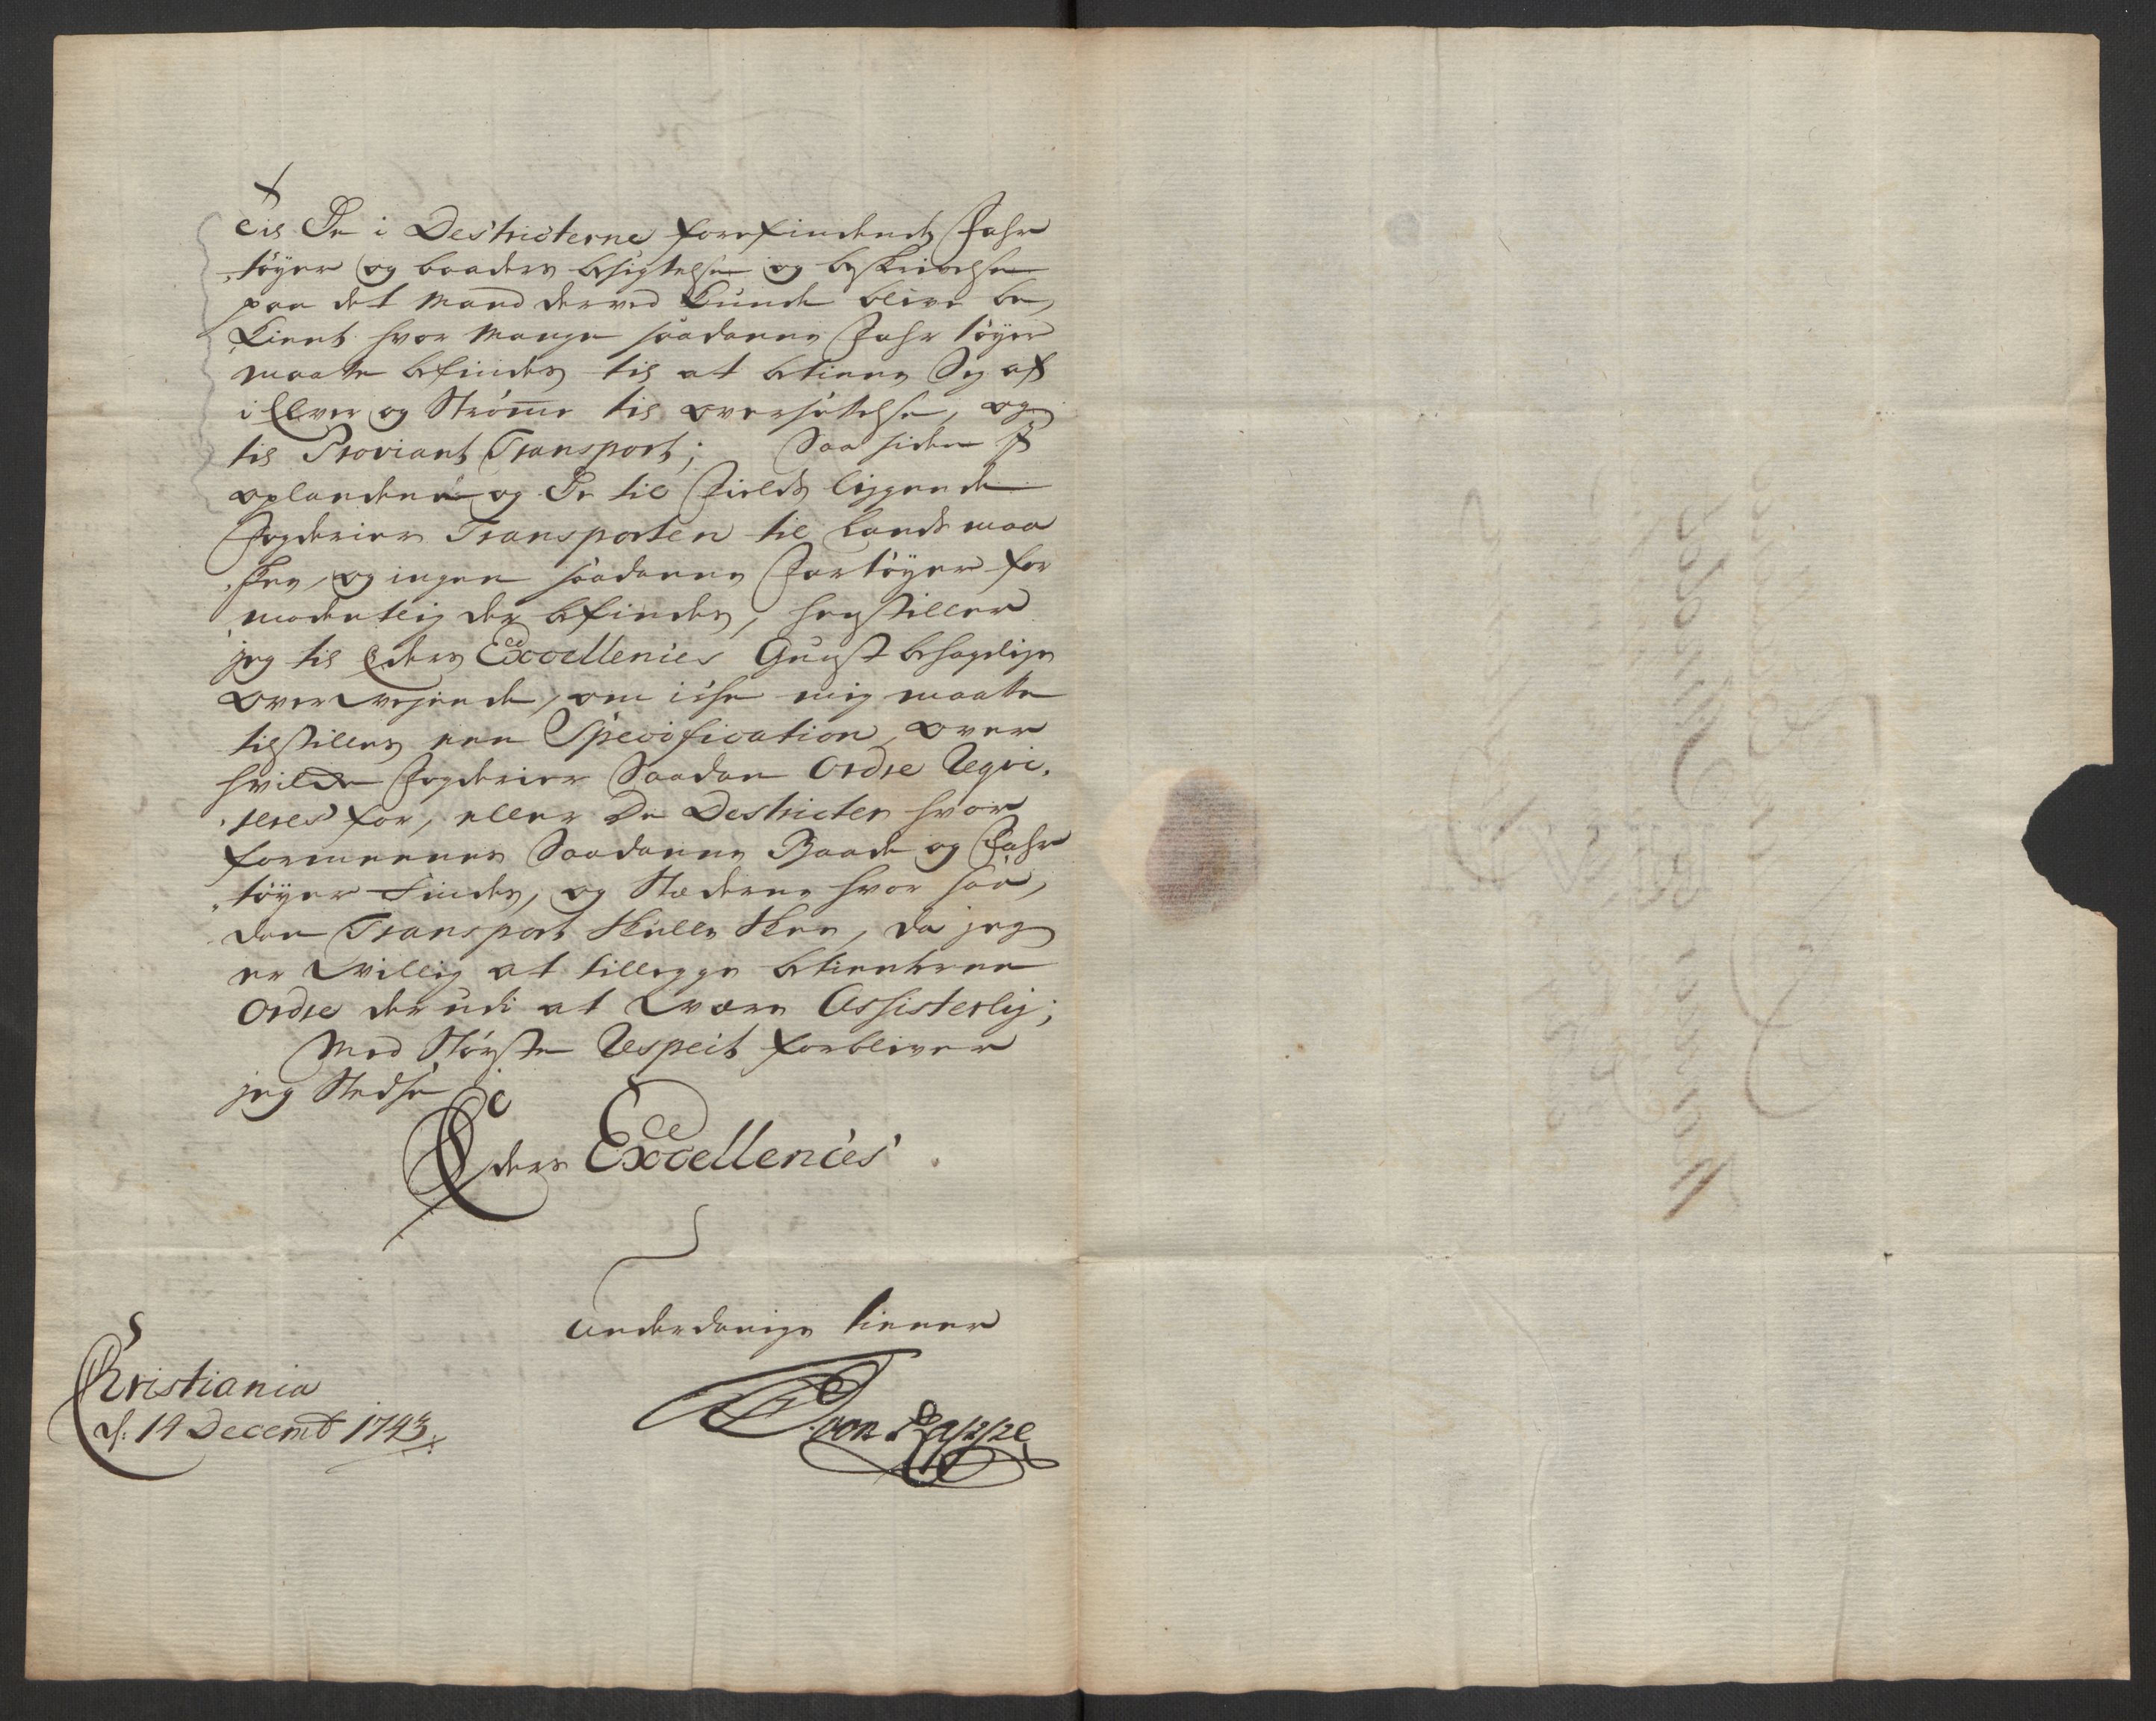 til De i Destricterne forefindende Fahr
tøyer og baaders besigtelse og beskrivelse
paa det Mand derved kunde blive be„
kient hvor Mange saadanne Fahr tøyer
maatte befindes til at betiene Sig af
i Elver og Strømme til oversættelse, og
til Proviant Transport; Saa siden
oplandene og De til Fields liggende
Fogderier Transporten til Lands maa
skee, og ingen saadanne Fartøyer for
modentlig der befindes, henstiller
jeg til Eders Excellences Gunst behagelige
overvejende, om icke mig maatte
tilstilles een Specification over
hvilcke Fogderier Saadan Ordre Reqvi„
reres for, eller De Destricter hvor
formeenes Saadanne Baade og Fahr
„tøyer findes, og Stæderne hvor saa„
dan Transport skulle skee, da jeg
er villig at tillegge betienterne
Ordre derudi at være Assisterlig;
Med Største Respect forbliver
jeg Stedse
Eders Excellences
underdanige tiener
von Rappe
Christiania
d: 14 Decemb 1743